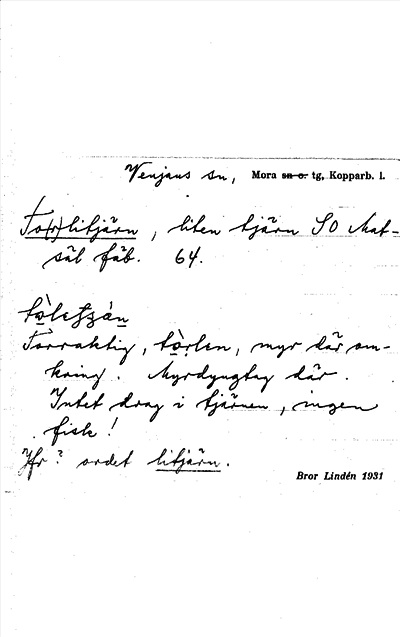 Venjans sn, Mora sn o. tg, Kopparb. l.
To(r)litjärn, liten tjärn SO Mat-
säl fäb. 64.
Torraktig, myr där om-
kring. Myrdyngtag där.
Intet drag i tjärnen, ingen
fisk!
Jfr? ordet litjärn.
Bror Lindén 1931